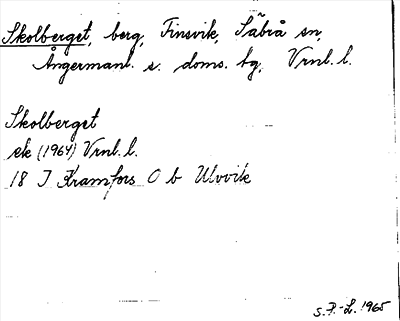 Skolberget, berg, Finsvik, Säbrå sn,
Ångermanl. s. doms. hg, Vrnl. l.
Skolberget
ek (1964) Vrnl. l.
18 J Kramfors O b Ulvvik
S.P.-L. 1965